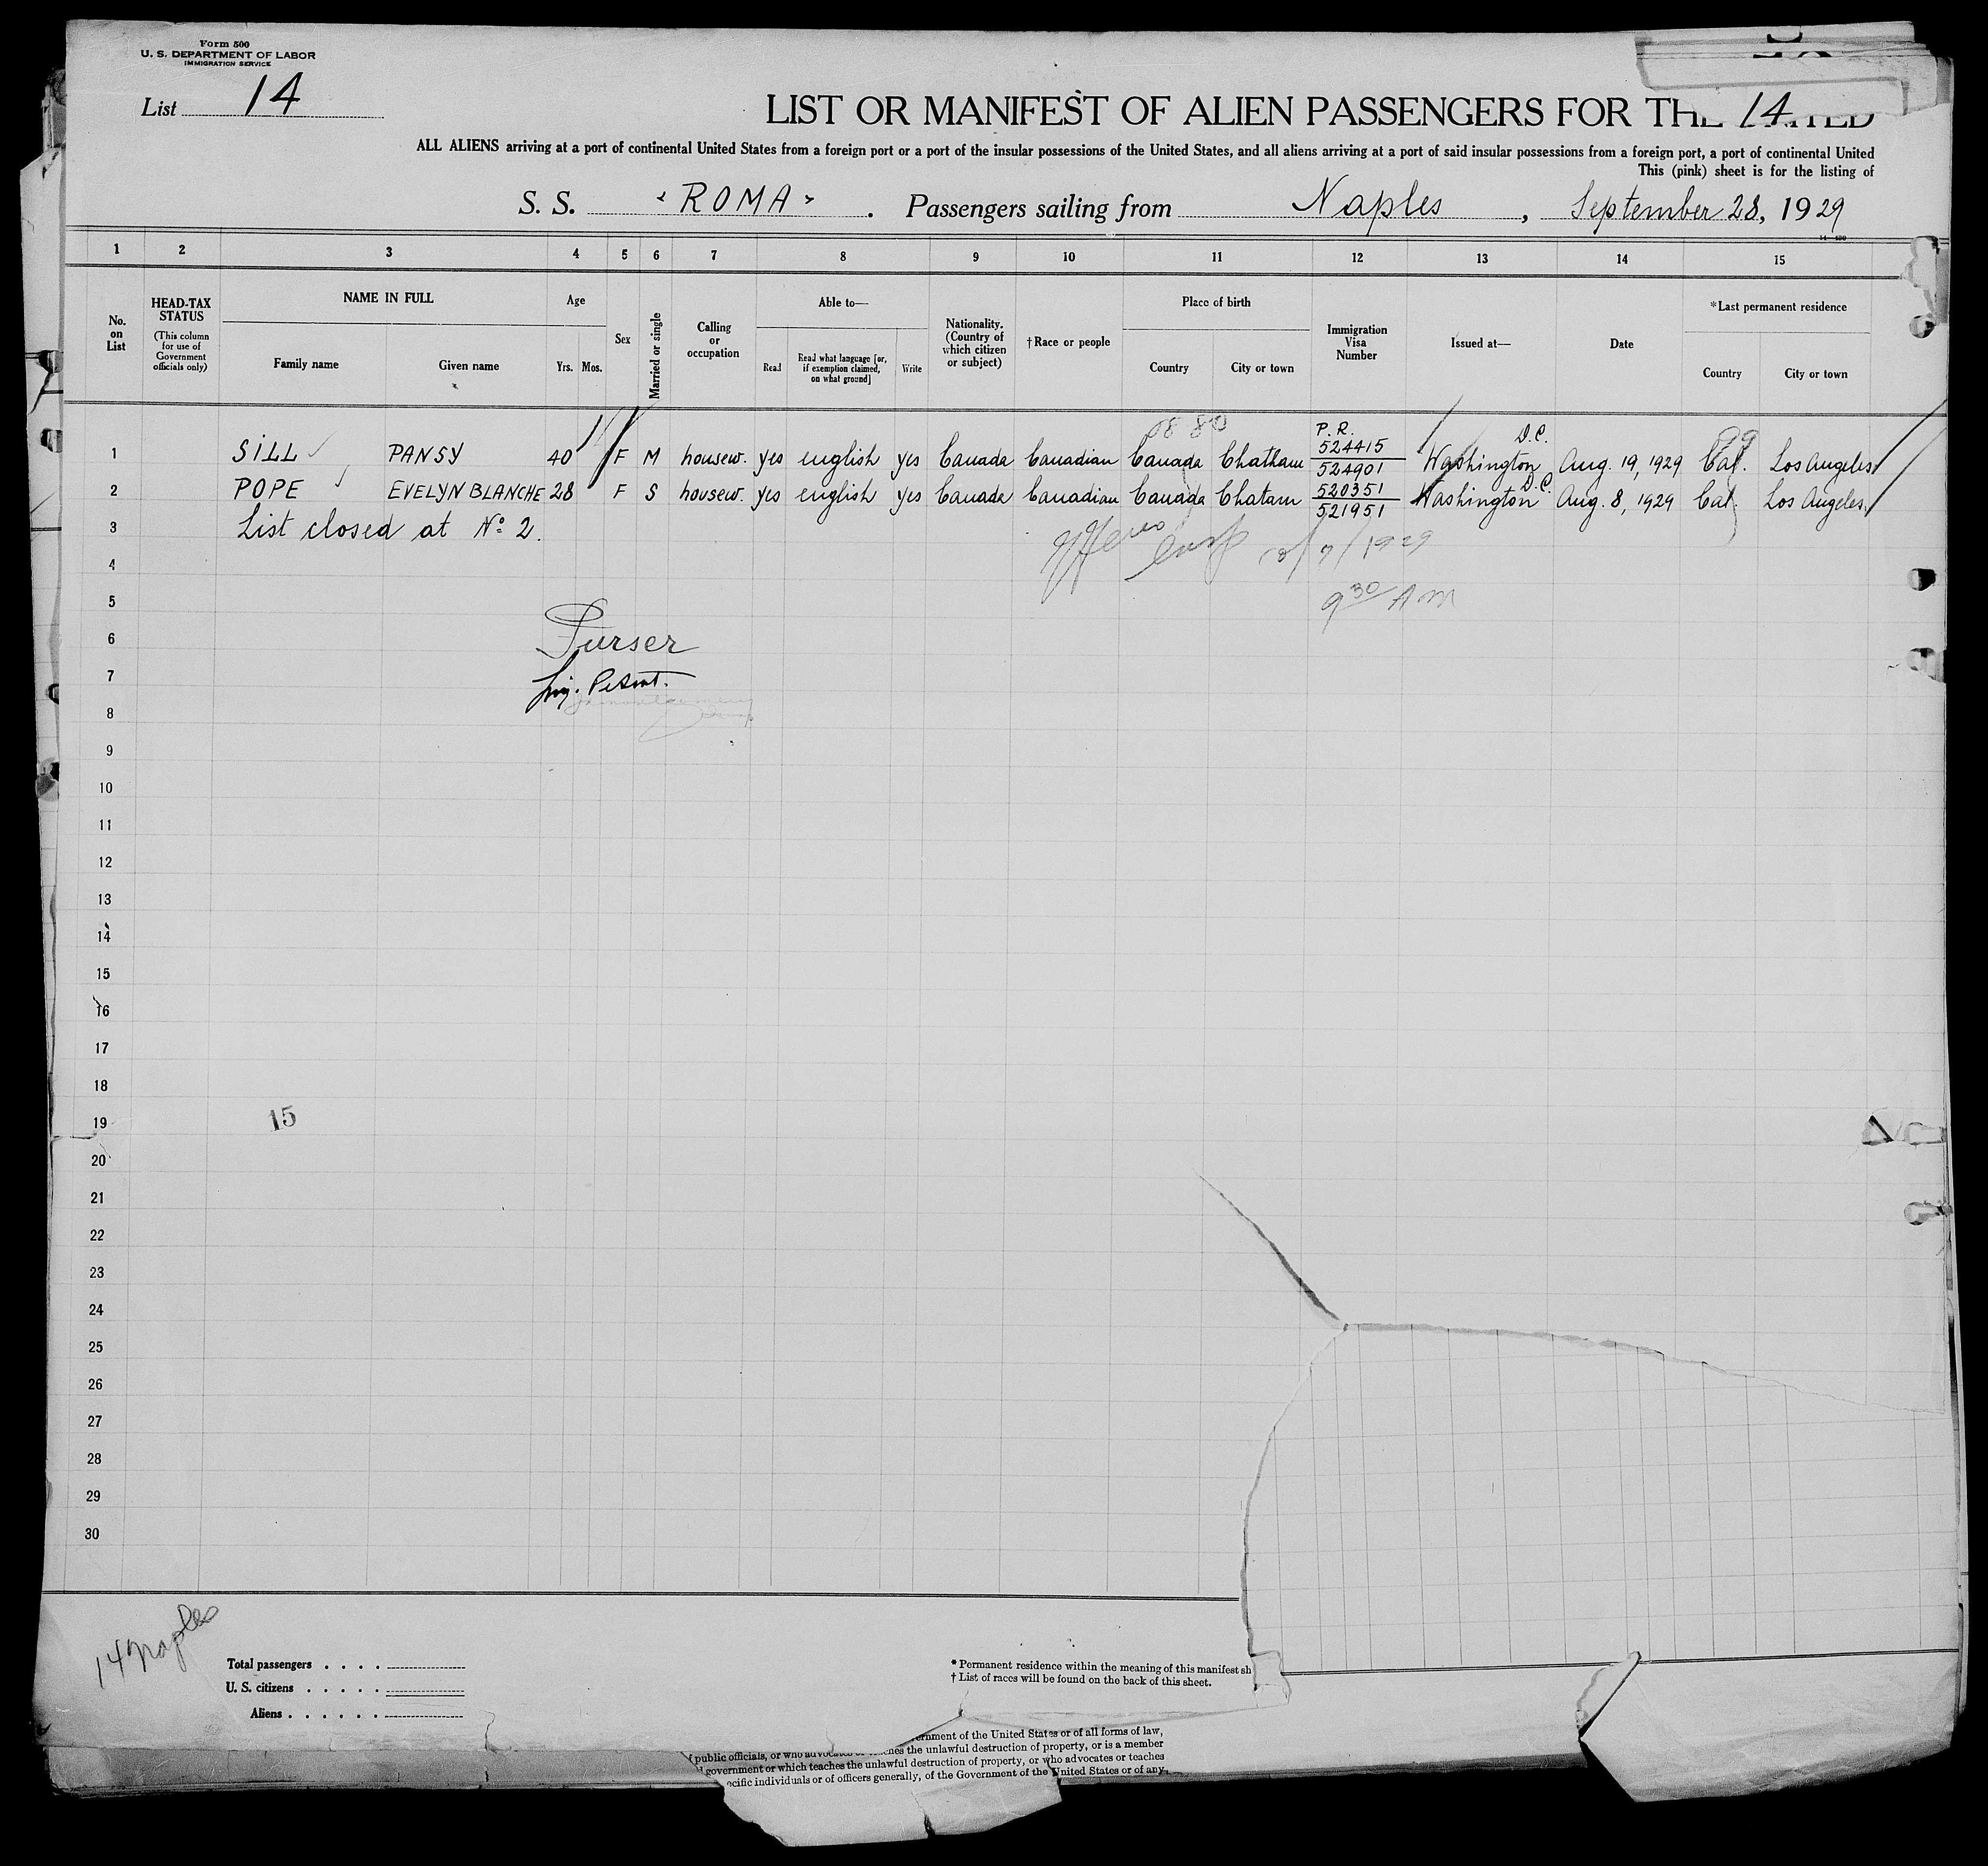 Form 500
U. S. DEPARTMENT OF LABOR
IMMIGRATION SERVICE
List 14
LIST OR MANIFEST OF ALIEN PASSENGERS FOR THE
14
ALL ALIENS arriving at a port of continental United States from a foreign port or a port of the insular possessions of the United States, and all aliens arriving at a port of said insular possessions from a foreign port, a port of continental United
This (pink) sheet is for the listing of
S. S. "ROMA". Passengers sailing from Naples, September 28, 1929
1 2 3 4 5 6 7 8 9 10 11 12 13 14 15
No. on List
HEAD-TAX STATUS
(This column for use of Government officials only)
NAME IN FULL
Family name Given name
Age
Yrs. Mos.
Sex
Married or single
Calling or occupation
Able to—
Read
Read what language [or, if exemption claimed, on what ground]
Write
Nationality. (Country of which citizen or subject)
†Race or people
Place of birth
Country City or town
Immigration Visa Number
Issued at—
Date
*Last permanent residence
Country City or town
P. R.
1 SILL PANSY 40 F M housew. yes english yes Canada Canadian Canada Chatham 524415 524901 Washington D.C. Aug. 19, 1929 Cal. Los Angeles
2 POPE EVELYN BLANCHE 28 F S housew. yes english yes Canada Canadian Canada Chatam 520351 521951 Washington D.C. Aug. 8, 1929 Cal. Los Angeles
3 List closed at No. 2.
4
5
6
7
8
9
10
11
12
13
14
15
16
17
18
19
20
21
22
23
24
25
26
27
28
29
30
9 30 AM
Purser
15
14 Naples
Total passengers . . . .
U. S. citizens . . . . .
Aliens . . . . . .
* Permanent residence within the meaning of this manifest sh
† List of races will be found on the back of this sheet.
ernment of the United States or of all forms of law,
public officials, or who advocates or teaches the unlawful destruction of property, or is a member
government or which teaches the unlawful destruction of property, or who advocates or teaches
ecific individuals or of officers generally, of the Government of the United States or of any